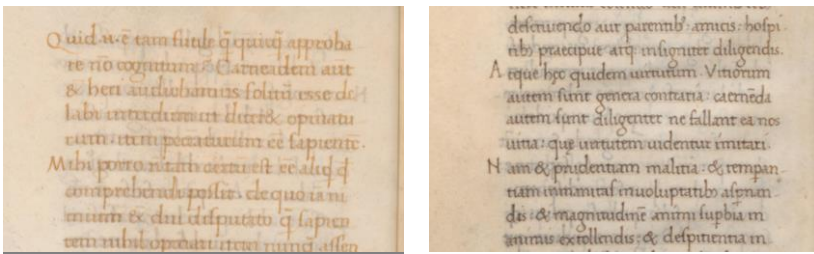 Quid. n. ē tam futile q̄ quicq̄ approba
re nō cognitum Carneadem aūt
& heri audiebamus solitū esse
labi interdum ut diceret & opinatu
rum. item peccaturum eē sapientē.
Mihi porro nam certū est eē aliqd
comprehendi possit. de quo iam
nimium & diu disputato q̄ sapien
tem nihil opinari nunq̄ assen
deseruendo aut parentib; amicis: hospi
tib; praecipue atq; insigniter diligendis.
Atque hęc quidem uirtutum. Vitiorum
autem sunt genera contraria: cernēda
autem sunt diligenter ne fallant ea nos
uitia: quę uirtutem uidentur imitari.
Nam & prudentiam malitia: & temperan
tiam inmanitas in uoluptatib; aspnan
dis & magnitudinē animi supbia in
animis extollendis: & despitientia in